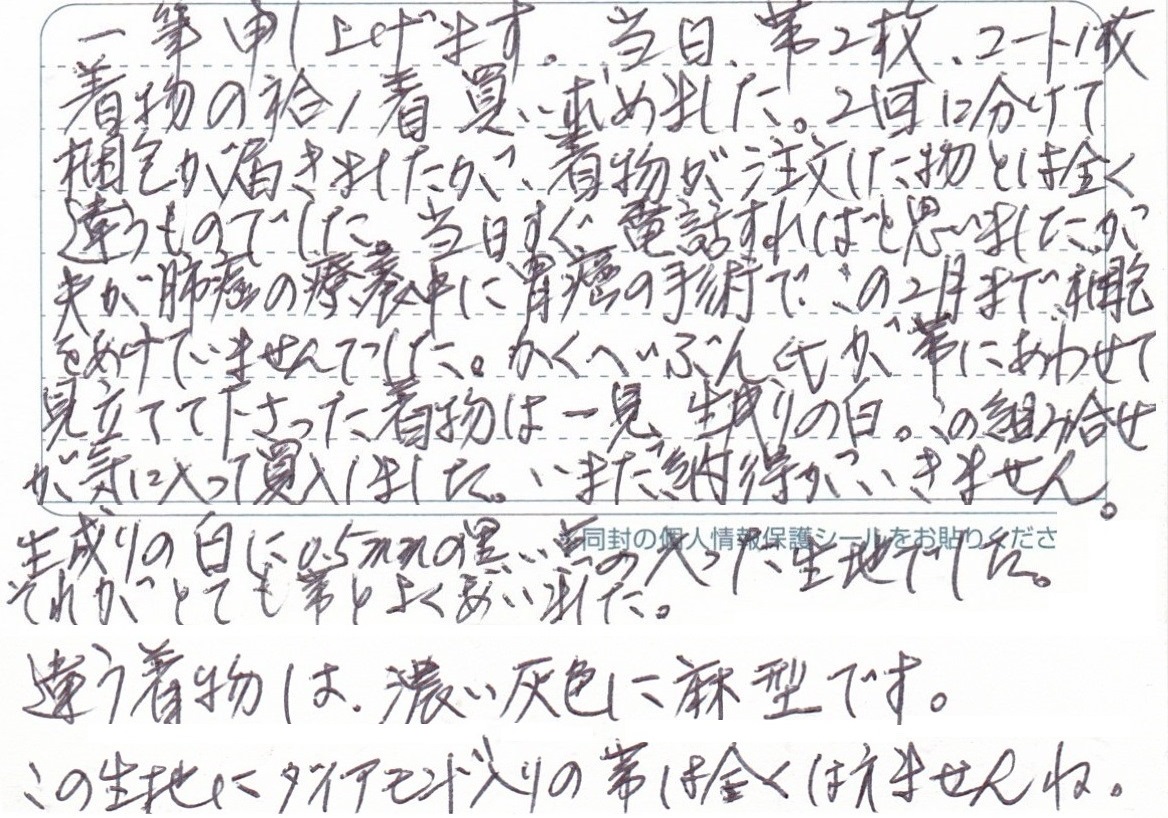 一筆申し上げます。当日、帯2枚、コート1枚
着物の袷1着買い求めました。2回に分けて
梱包が届きましたが、着物が注文した物とは全く
違うものでした。当日すぐ電話すればと思いましたが
夫が肺癌の療養中に胃癌の手術で、この2月まで、梱包
をあけていませんでした。かくへいぶんしが帯にあわせて
見立てて下さった着物は一見、生成りの白。この組み合せ
が気に入って買入しました。いまだ納得がいきません。
同封の個人情報保護シールをお貼りくださ
生成りの白に0.5mmの黒い点の入った生地でした。
それがとても帯とよくあいました。
違う着物は、濃い灰色に麻型です。
この生地にダイアモンド入りの帯は全くはえませんね。